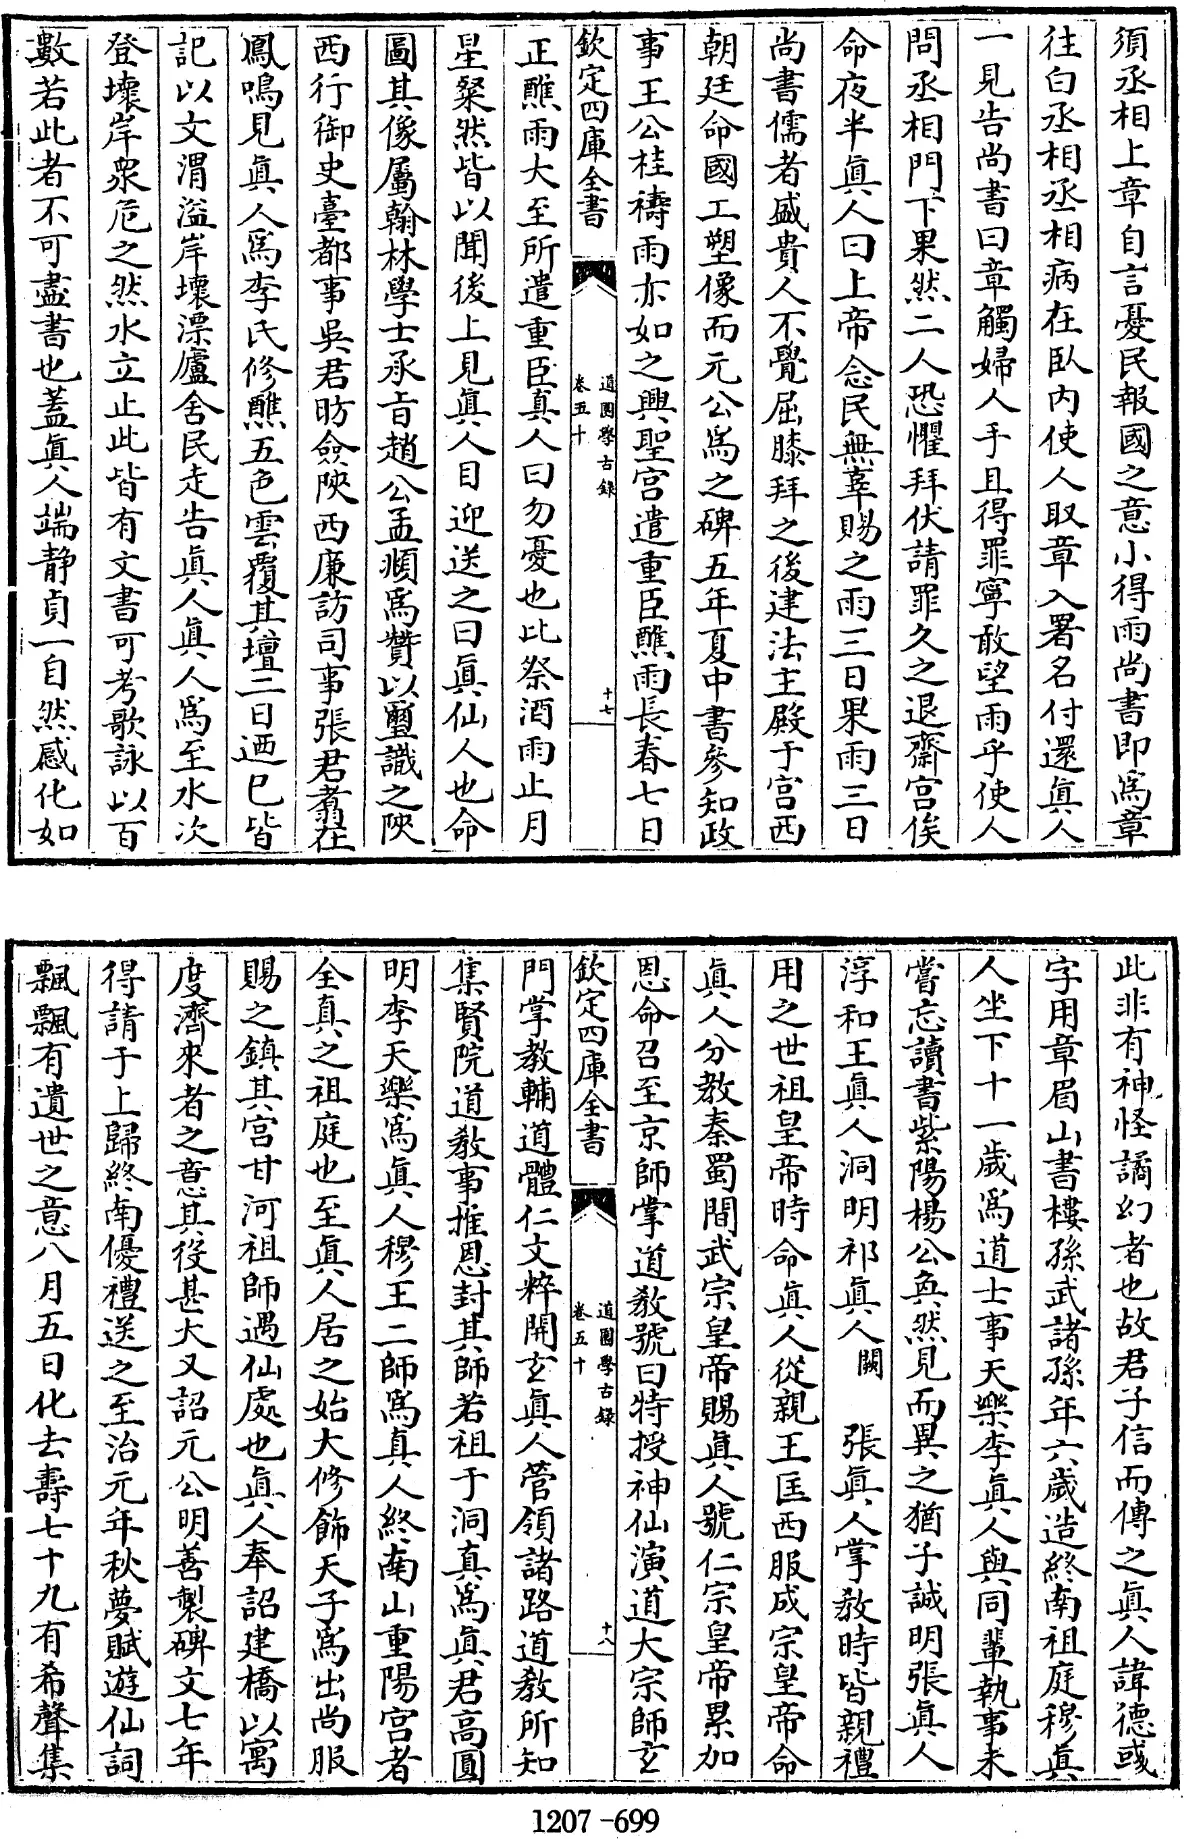 須丞相上章自言憂民報國之意小得雨尚書即為章
往白丞相丞相病在臥内使人取章入署名付還真人
一見告尚書曰章觸婦人手且得罪寧敢望雨乎使人
問丞相門下果然二人恐懼拜伏請罪久之退齋宫俟
命夜半真人曰上帝念民無辜賜之雨三日果雨三日
尚書儒者盛貴人不覺屈膝拜之後建法主殿于宫西
朝廷命國工塑像而元公為之碑五年夏中書參知政
事王公桂禱雨亦如之興聖宫遣重臣醮雨長春七日
欽定四庫全書
道園學古錄
卷五十
十七
正醮雨大至所遣重臣真人曰勿憂也比祭酒雨止月
星粲然皆以聞後上見真人目迎送之曰真仙人也命
圖其像屬翰林學士承旨趙公孟頫為贊以璽識之陜
西行御史臺都事吳君昉僉陜西廉訪司事張君翥在
鳳鳴見真人為李氏修醮五色雲覆其壇二日迺已皆
記以文渭溢岸壞漂廬舍民走告真人真人為至水次
登壞岸衆危之然水立止此皆有文書可考歌詠以百
數若此者不可盡書也蓋真人端靜貞一自然感化如
此非有神怪譎幻者也故君子信而傳之真人諱德彧
字用章眉山書樓孫武諸孫年六歲造終南祖庭穆真
人坐下十一歲為道士事天樂李真人與同輩執事未
嘗忘讀書紫陽楊公奐然見而異之猶子誠明張真人
淳和王真人洞明祁真人闕 張真人掌教時皆親禮
用之世祖皇帝時命真人從親王匡西服成宗皇帝命
真人分教秦蜀間武宗皇帝賜真人號仁宗皇帝累加
恩命召至京師掌道教號曰特授神仙演道大宗師玄
欽定四庫全書
道園學古錄
卷五十
十八
門掌教輔道體仁文粹開玄真人管領諸路道教所知
集賢院道教事推恩封其師若祖于洞真為真君高圓
明李天樂為真人穆王二師為真人終南山重陽宫者
全真之祖庭也至真人居之始大修飾天子為出尚服
賜之鎮其宫甘河祖師遇仙處也真人奉詔建橋以寓
度濟來者之意其役甚大又詔元公明善製碑文七年
得請于上歸終南優禮送之至治元年秋夢賦遊仙詞
飄飄有遺世之意八月五日化去壽七十九有希聲集
1207-699